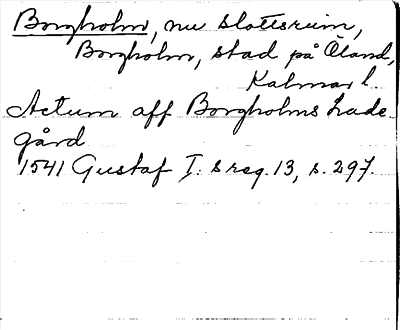 Borgholm, nu slottsruin,
Borgholm, stad på Öland,
Kalmar l.
Actum aff Borgholms Lade
gård
1541 Gustaf I:s reg. 13, s. 297.